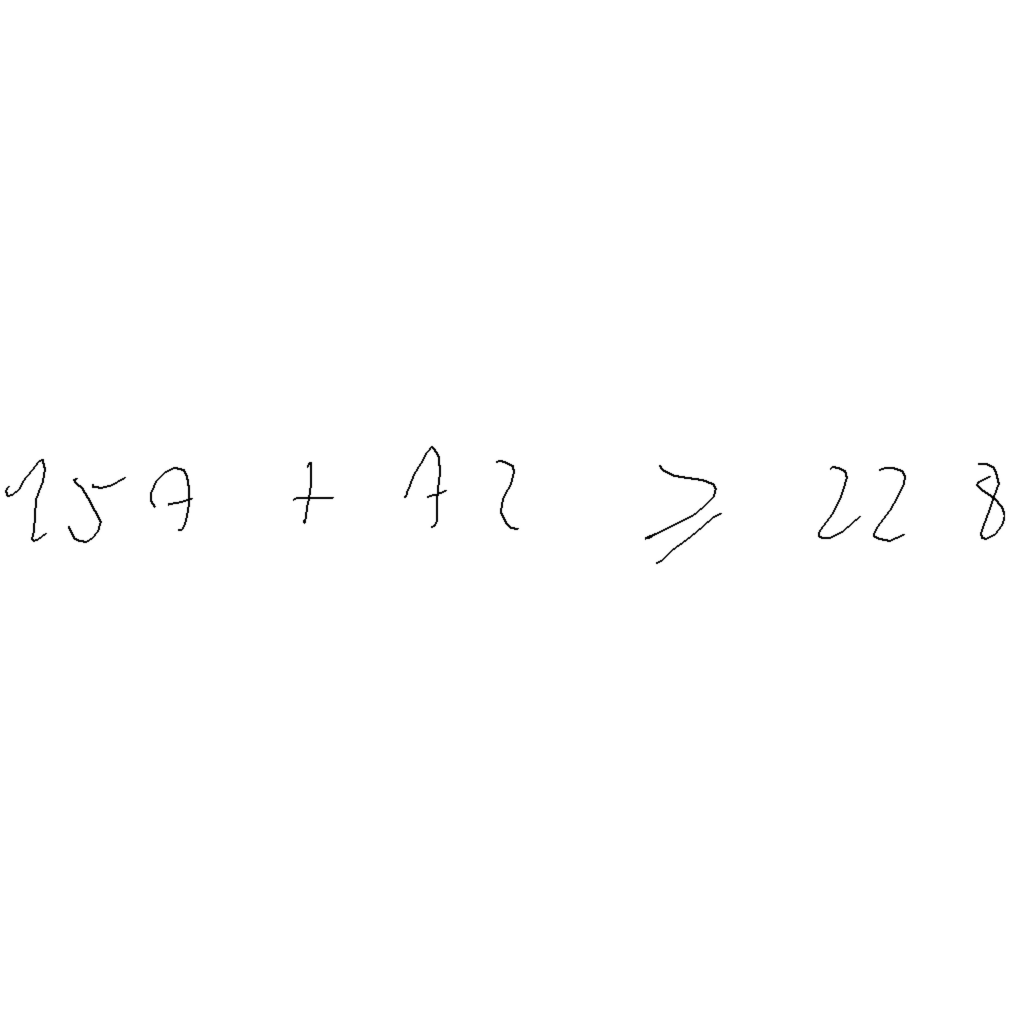 157 + 72 ≥ 228